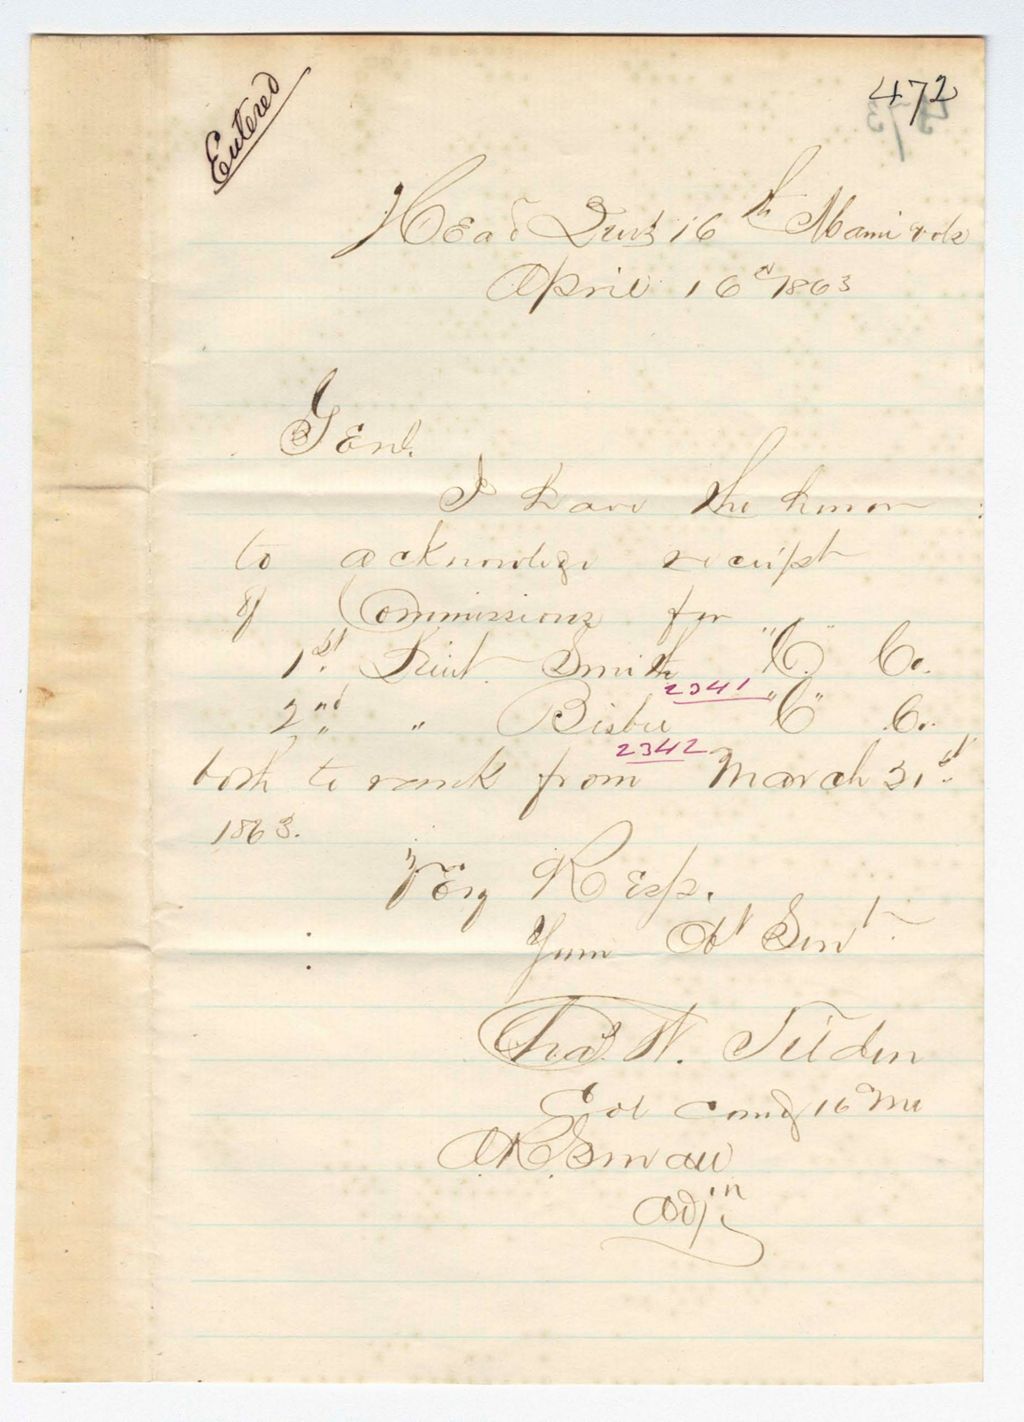 Entered
472
Head Qurs 16th Maine vols
April 16th 1863
Genl.
I have the honor
to acknowledge receipt
of Commissions for
1st. Lieut. Smith "C" Co.
2341
2nd " Bisbee "C" Co.
2342
both to rank from March 31st
1863.
Very Resp.
Your Obt Servt
Chas. W. Tilden
Col Comdg 16 Me
A. R. Small
Adj.